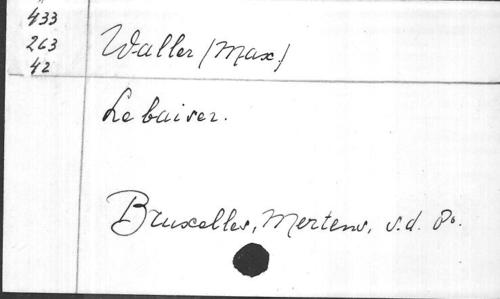 433
263
42
Waller (Max)
Le baiser.
Bruxelles, Mertens, s.d. 8o.